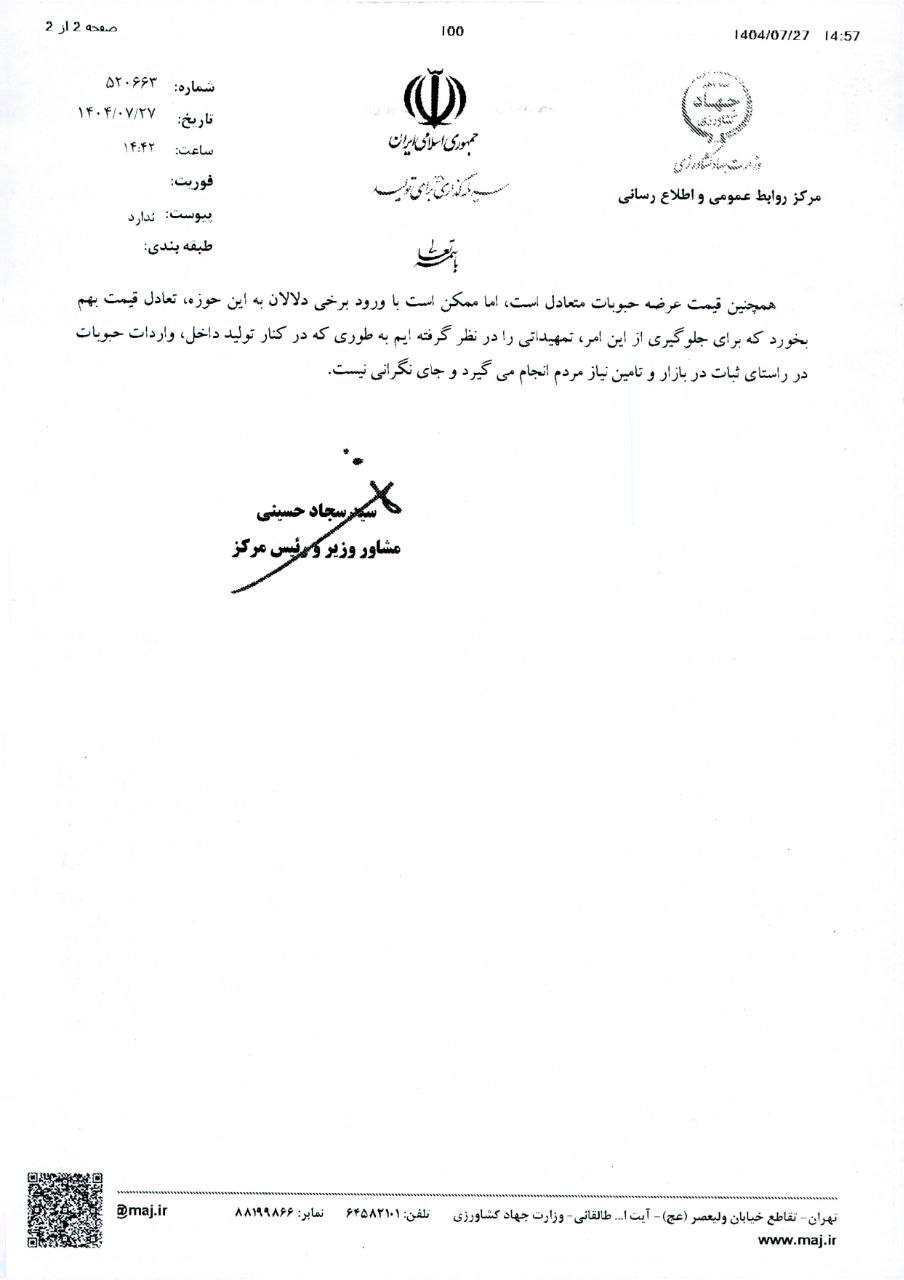 1404/07/27 14:57
100
صفحه 2 از 2
جهاد
کشاورزی
وزارت جهاد کشاورزی
مرکز روابط عمومی و اطلاع رسانی
جمهوری اسلامی ایران
سرمایه گذاری برای تولید
باسمه تعالی
شماره: ۵۲۰۶۶۳
تاریخ: ۱۴۰۴/۰۷/۲۷
ساعت: ۱۴:۴۲
فوریت:
پیوست: ندارد
طبقه بندی:
همچنین قیمت عرضه حبوبات متعادل است، اما ممکن است با ورود برخی دلالان به این حوزه، تعادل قیمت بهم
بخورد که برای جلوگیری از این امر، تمهیداتی را در نظر گرفته ایم به طوری که در کنار تولید داخل، واردات حبوبات
در راستای ثبات در بازار و تامین نیاز مردم انجام می گیرد و جای نگرانی نیست.
سید سجاد حسینی
مشاور وزیر و رئیس مرکز
تهران- تقاطع خیابان ولیعصر (عج)- آیت ا... طالقانی- وزارت جهاد کشاورزی تلفن: ۶۴۵۸۲۱۰۱ نمابر: ۸۸۱۹۹۸۶۶ @maj.ir
www.maj.ir